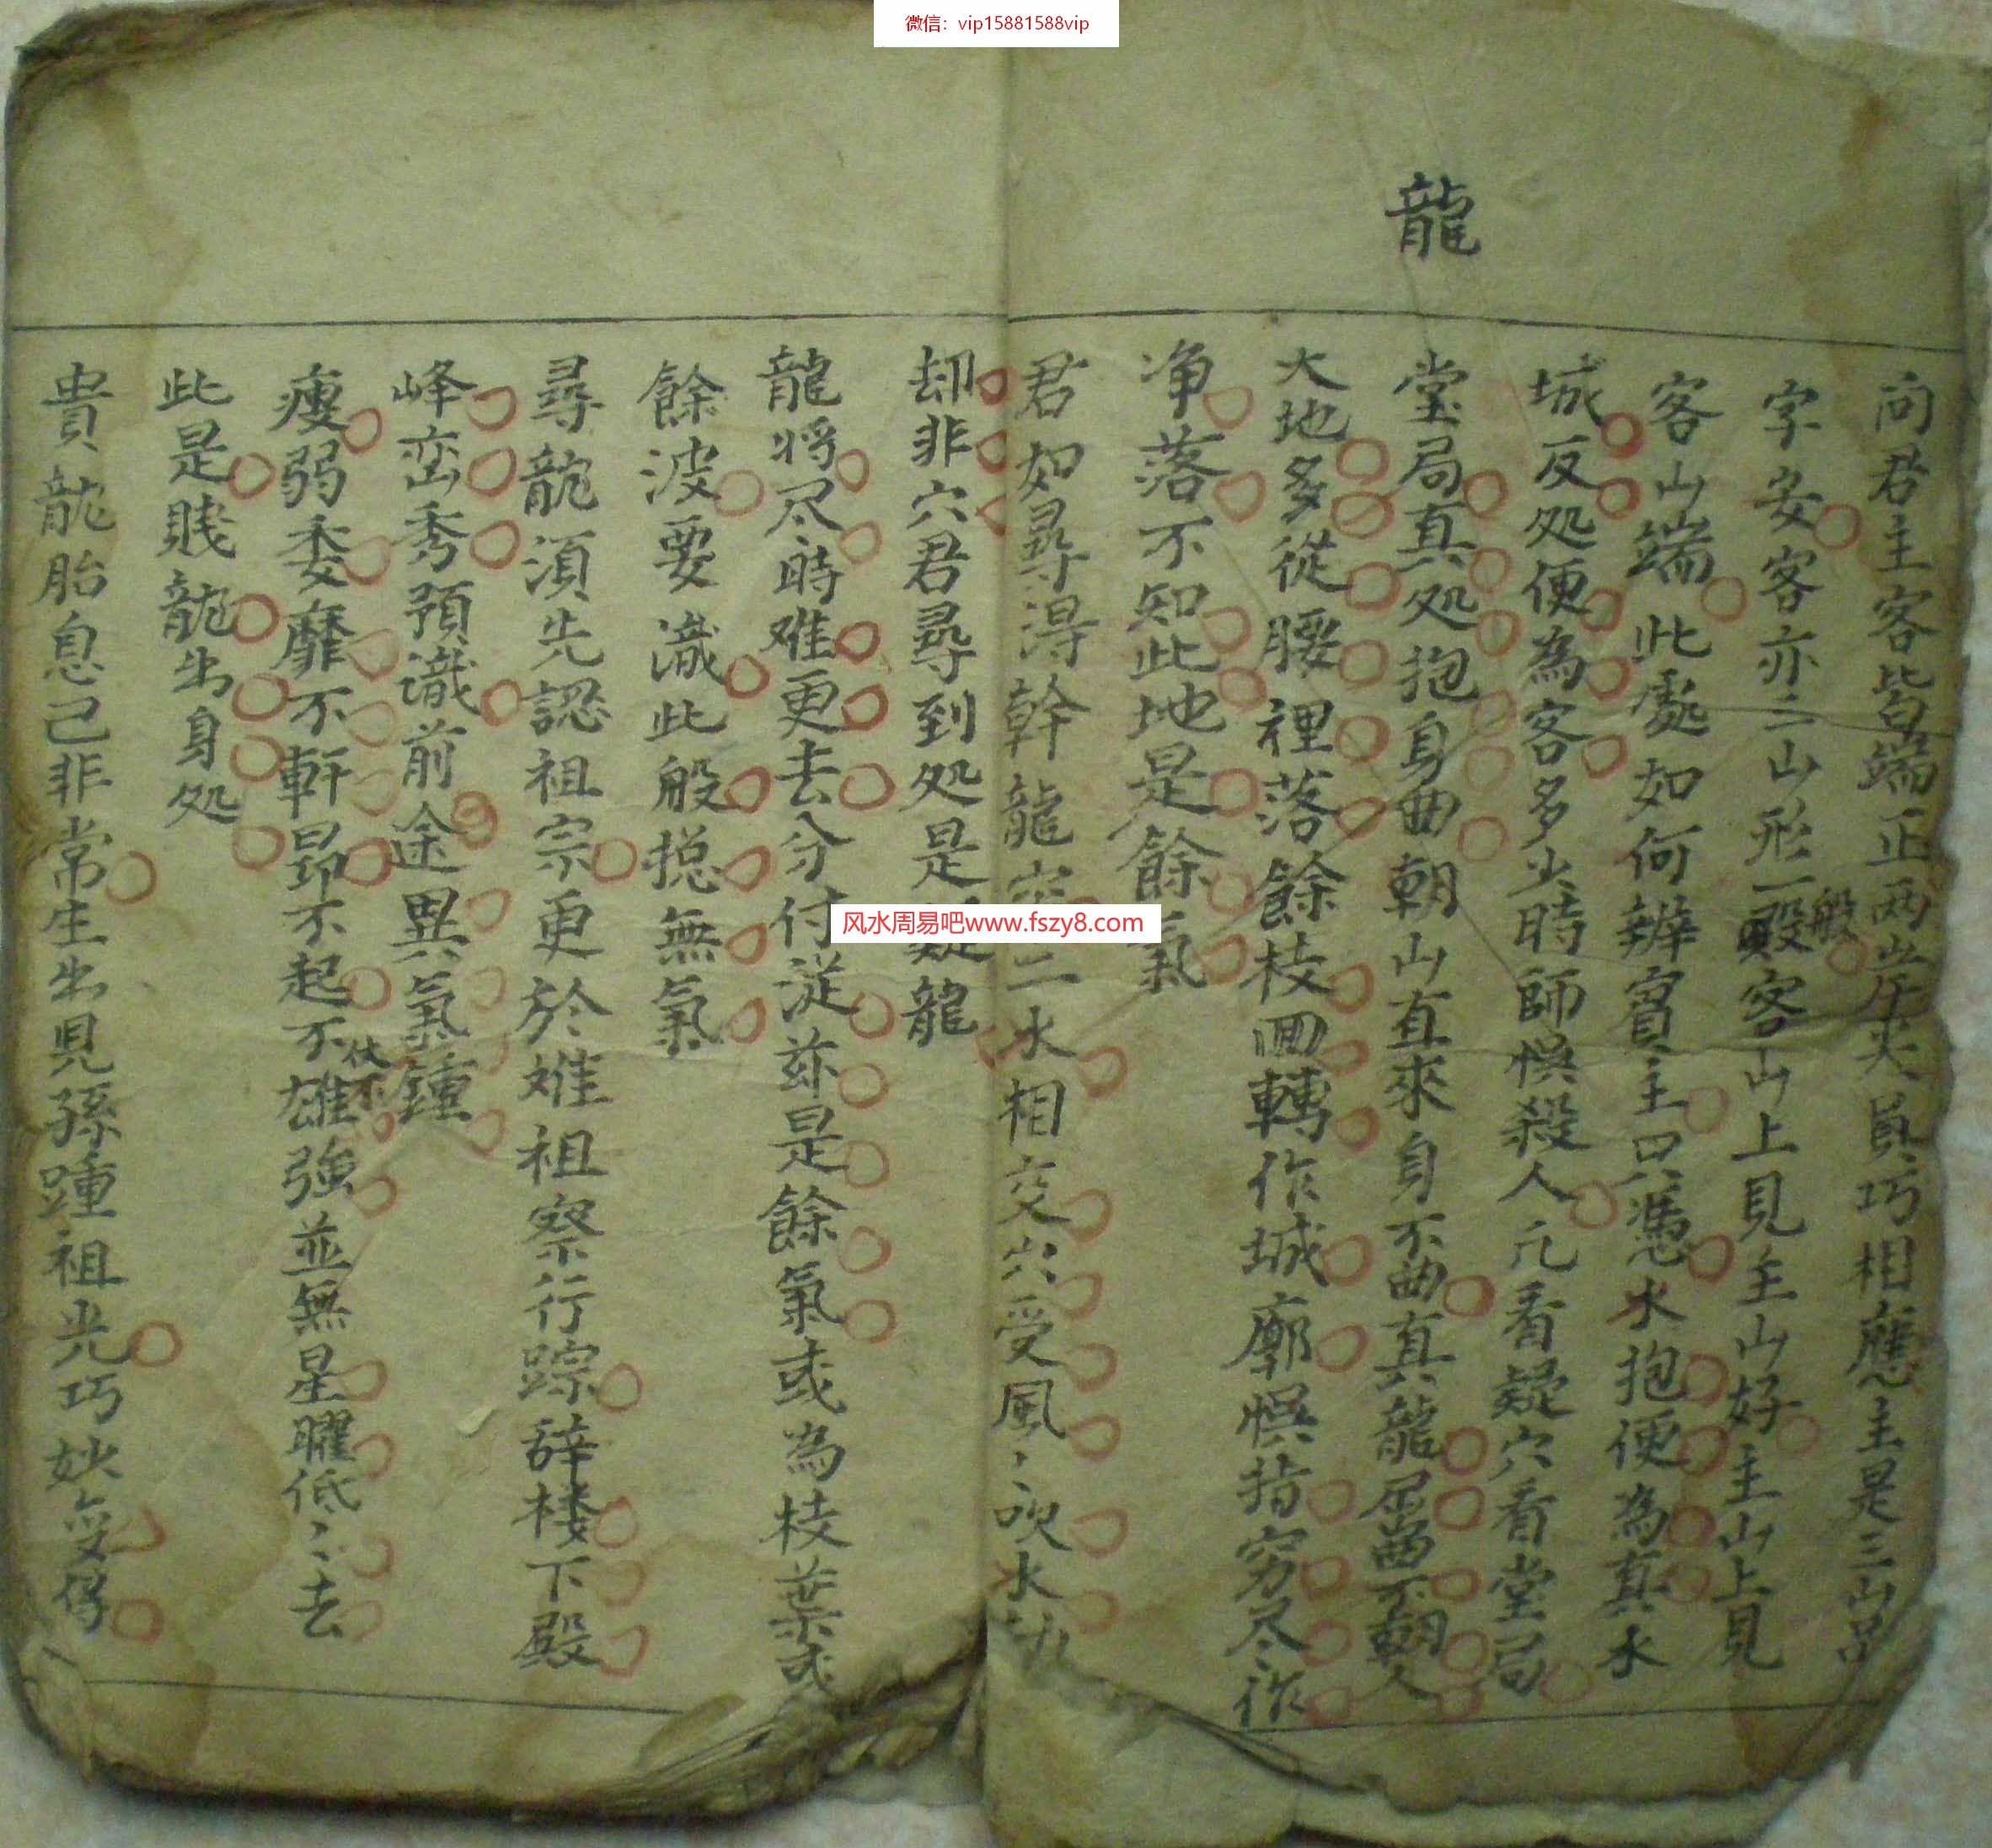 微信：vip15881588vip
龍
问君主客皆端正两岸夾員巧相應主是三山品
字安客亦三山形一殿般客山上見主山好主山上見
客山端此處如何辨賓主只憑水抱便為真水
城反処便為客多少時師悞殺人凢看疑穴看堂局
堂局真処抱身曲朝山直來身不曲真龍屈曲不朝人
大地多從腰裡落餘枝囬轉作城廓悞指穷尽作
净落不知此地是餘氣
君如尋淂幹龍二水相交穴受風〻吹水刼
却非穴君尋到処是疑龍
龍将尽時难更去分付従兹是餘氣或為枝葉或
餘波要識此般揔無氣
尋龍湏先認祖宗更於难祖察行踪辞楼下殿
峰峦秀預識前途異氣鍾
瘦弱委靡不軒昻不起不伏不雄強並無星曜低〻去
此是賎龍出身処
貴龍胎息已非常生出児孫踵祖光巧妙
风水周易吧www.fszy8.com